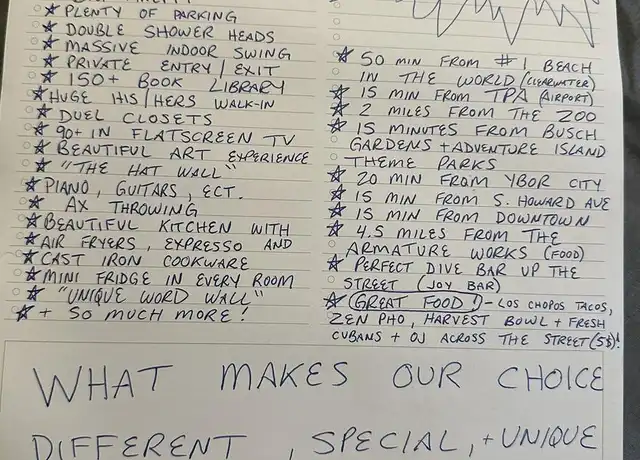 ★ PLENTY OF PARKING
★ DOUBLE SHOWER HEADS
★ MASSIVE INDOOR SWING
★ PRIVATE ENTRY / EXIT
★ 150+ BOOK LIBRARY
★ HUGE HIS/HERS WALK-IN
★ DUEL CLOSETS
★ 90+ IN FLATSCREEN TV
★ BEAUTIFUL ART EXPERIENCE
★ "THE HAT WALL"
★ PIANO, GUITARS, ECT.
★ AX THROWING
★ BEAUTIFUL KITCHEN WITH
★ AIR FRYERS, EXPRESSO AND
★ CAST IRON COOKWARE
★ MINI FRIDGE IN EVERY ROOM
★ "UNIQUE WORD WALL"
★ + SO MUCH MORE!
★ 50 MIN FROM #1 BEACH
IN THE WORLD (CLEARWATER)
★ 15 MIN FROM TPA (AIRPORT)
★ 2 MILES FROM THE ZOO
★ 15 MINUTES FROM BUSCH
GARDENS + ADVENTURE ISLAND
THEME PARKS
★ 20 MIN FROM YBOR CITY
★ 15 MIN FROM S. HOWARD AVE
★ 15 MIN FROM DOWNTOWN
★ 4.5 MILES FROM THE
ARMATURE WORKS (FOOD)
★ PERFECT DIVE BAR UP THE
STREET (JOY BAR)
★ (GREAT FOOD!) - LOS CHOPOS TACOS,
ZEN PHO, HARVEST BOWL + FRESH
CUBANS + OJ ACROSS THE STREET (5$)!
WHAT MAKES OUR CHOICE
DIFFERENT, SPECIAL, + UNIQUE